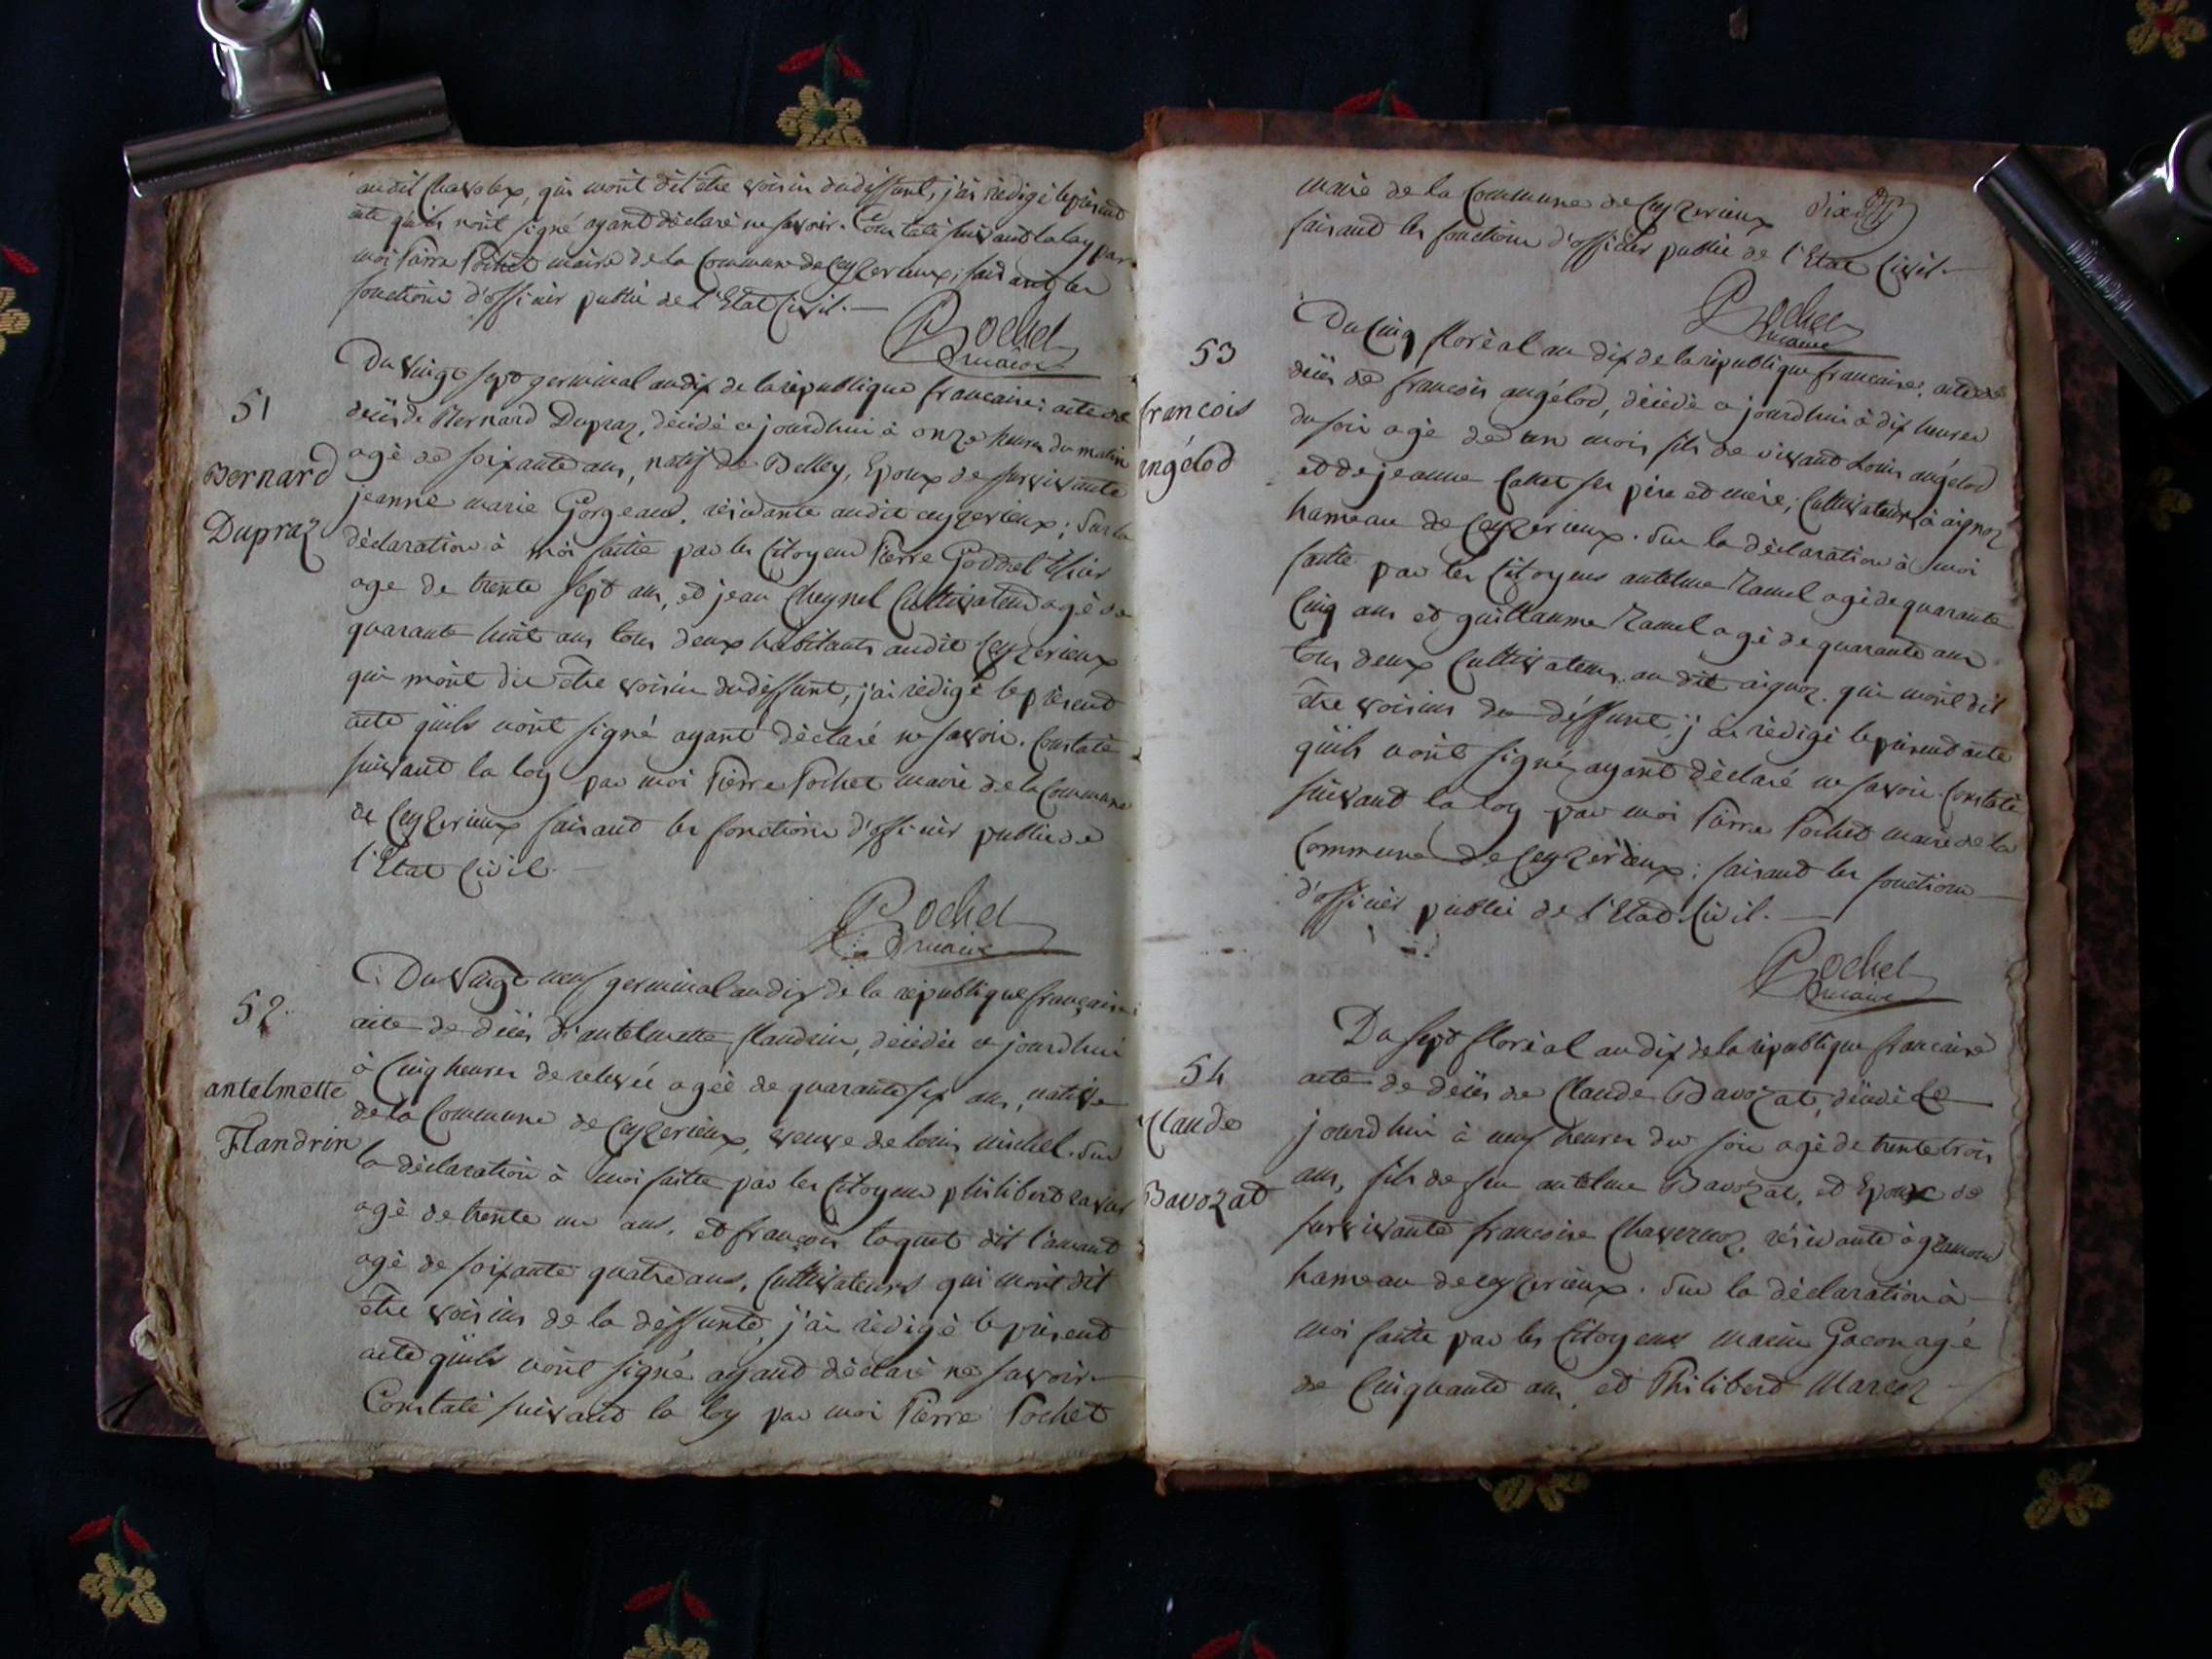 audit Chavoley, qui m'ont dit être voisin du deffunt, j'ai rédigé le présent
acte qu'ils n'ont signé ayant déclaré ne savoir. Constaté suivant la loy par
moi Pierre Pochet maire de la Commune de Ceyzerieux; faisant les
fonctions d'officier public de l'Etat Civil.
Pochet
maire
51
Bernard
Dupraz
Du vingt sept germinal an dix de la république francaise; acte de
décès de Bernard Dupraz, décédé ce jourdhui à onze heures du matin
agé de soixante ans, natif de Belley, Epoux de survivante
jeanne marie Gorgeaud, résidante audit ceyzerieux; Sur la
déclaration à moi faitte par les Citoyens Pierre Goddet
age de trente sept ans, et jean Cheynel Cultivateur agé de
quarante huit ans tous deux habitants audit Ceyzerieux
qui m'ont dit etre voisin du deffunt, j'ai rédigé le présent
acte qu'ils n'ont signé ayant déclaré ne savoir. Constaté
suivant la loy par moi Pierre Pochet maire de la Commune
de Ceyzerieux faisant les fonctions d'officier public de
l'Etat Civil.
Pochet
maire
52
antelmette
Flandrin
Du vingt neuf germinal an dix de la république française;
acte de décès d'antelmette flandrin, décédée ce jourdhui
à Cinq heures de relevée agée de quarante six ans, native
de la Commune de Ceyzerieux, veuve de louis michel. Sur
la déclaration à moi faitte par les Citoyens philibert
agé de trente un ans, et françois taquet dit l'amant
agé de soixante quatre ans, Cultivateurs qui m'ont dit
être voisins de la deffunte, j'ai rédigé le présent
acte qu'ils n'ont signé ayant déclaré ne savoir
Constaté suivant la loy par moi Pierre Pochet
maire de la Commune de Ceyzerieux
faisant les fonctions d'officier public de l'Etat Civil.
Pochet
maire
53
francois
angélod
Du Cinq floréal an dix de la république francaise; acte de
décès de francois angélod, décédé ce jourdhui à dix heures
du soir agé de un mois fils de vivant Louis angélod
et de jeanne Callet ses père et mère, Cultivateurs à aignoz
hameau de Ceyzerieux. Sur la déclaration à moi
faitte par les Citoyens antelme Ramel agé de quarante
Cinq ans et guillaume Ramel agé de quarante ans
tous deux Cultivateurs audit aignoz qui m'ont dit
être voisins du deffunt, j'ai rédigé le présent acte
qu'ils n'ont signé ayant déclaré ne savoir. Constaté
suivant la loy par moi Pierre Pochet maire de la
Commune de Ceyzerieux; faisant les fonctions
d'officier public de l'Etat Civil.
Pochet
maire
54
Claude
Bavozat
Du sept floréal an dix de la république francaise
acte de décès de Claude Bavozat, décédé Ce
jourdhui à neuf heures du soir agé de trente trois
ans, fils de feu antelme Bavozat, et Epoux de
survivante francoise Chavernoz, résidante à
hameau de ceyzerieux. Sur la déclaration à
moi faitte par les Citoyens marin Gacon agé
de Cinquante ans et Philibert Marcoz